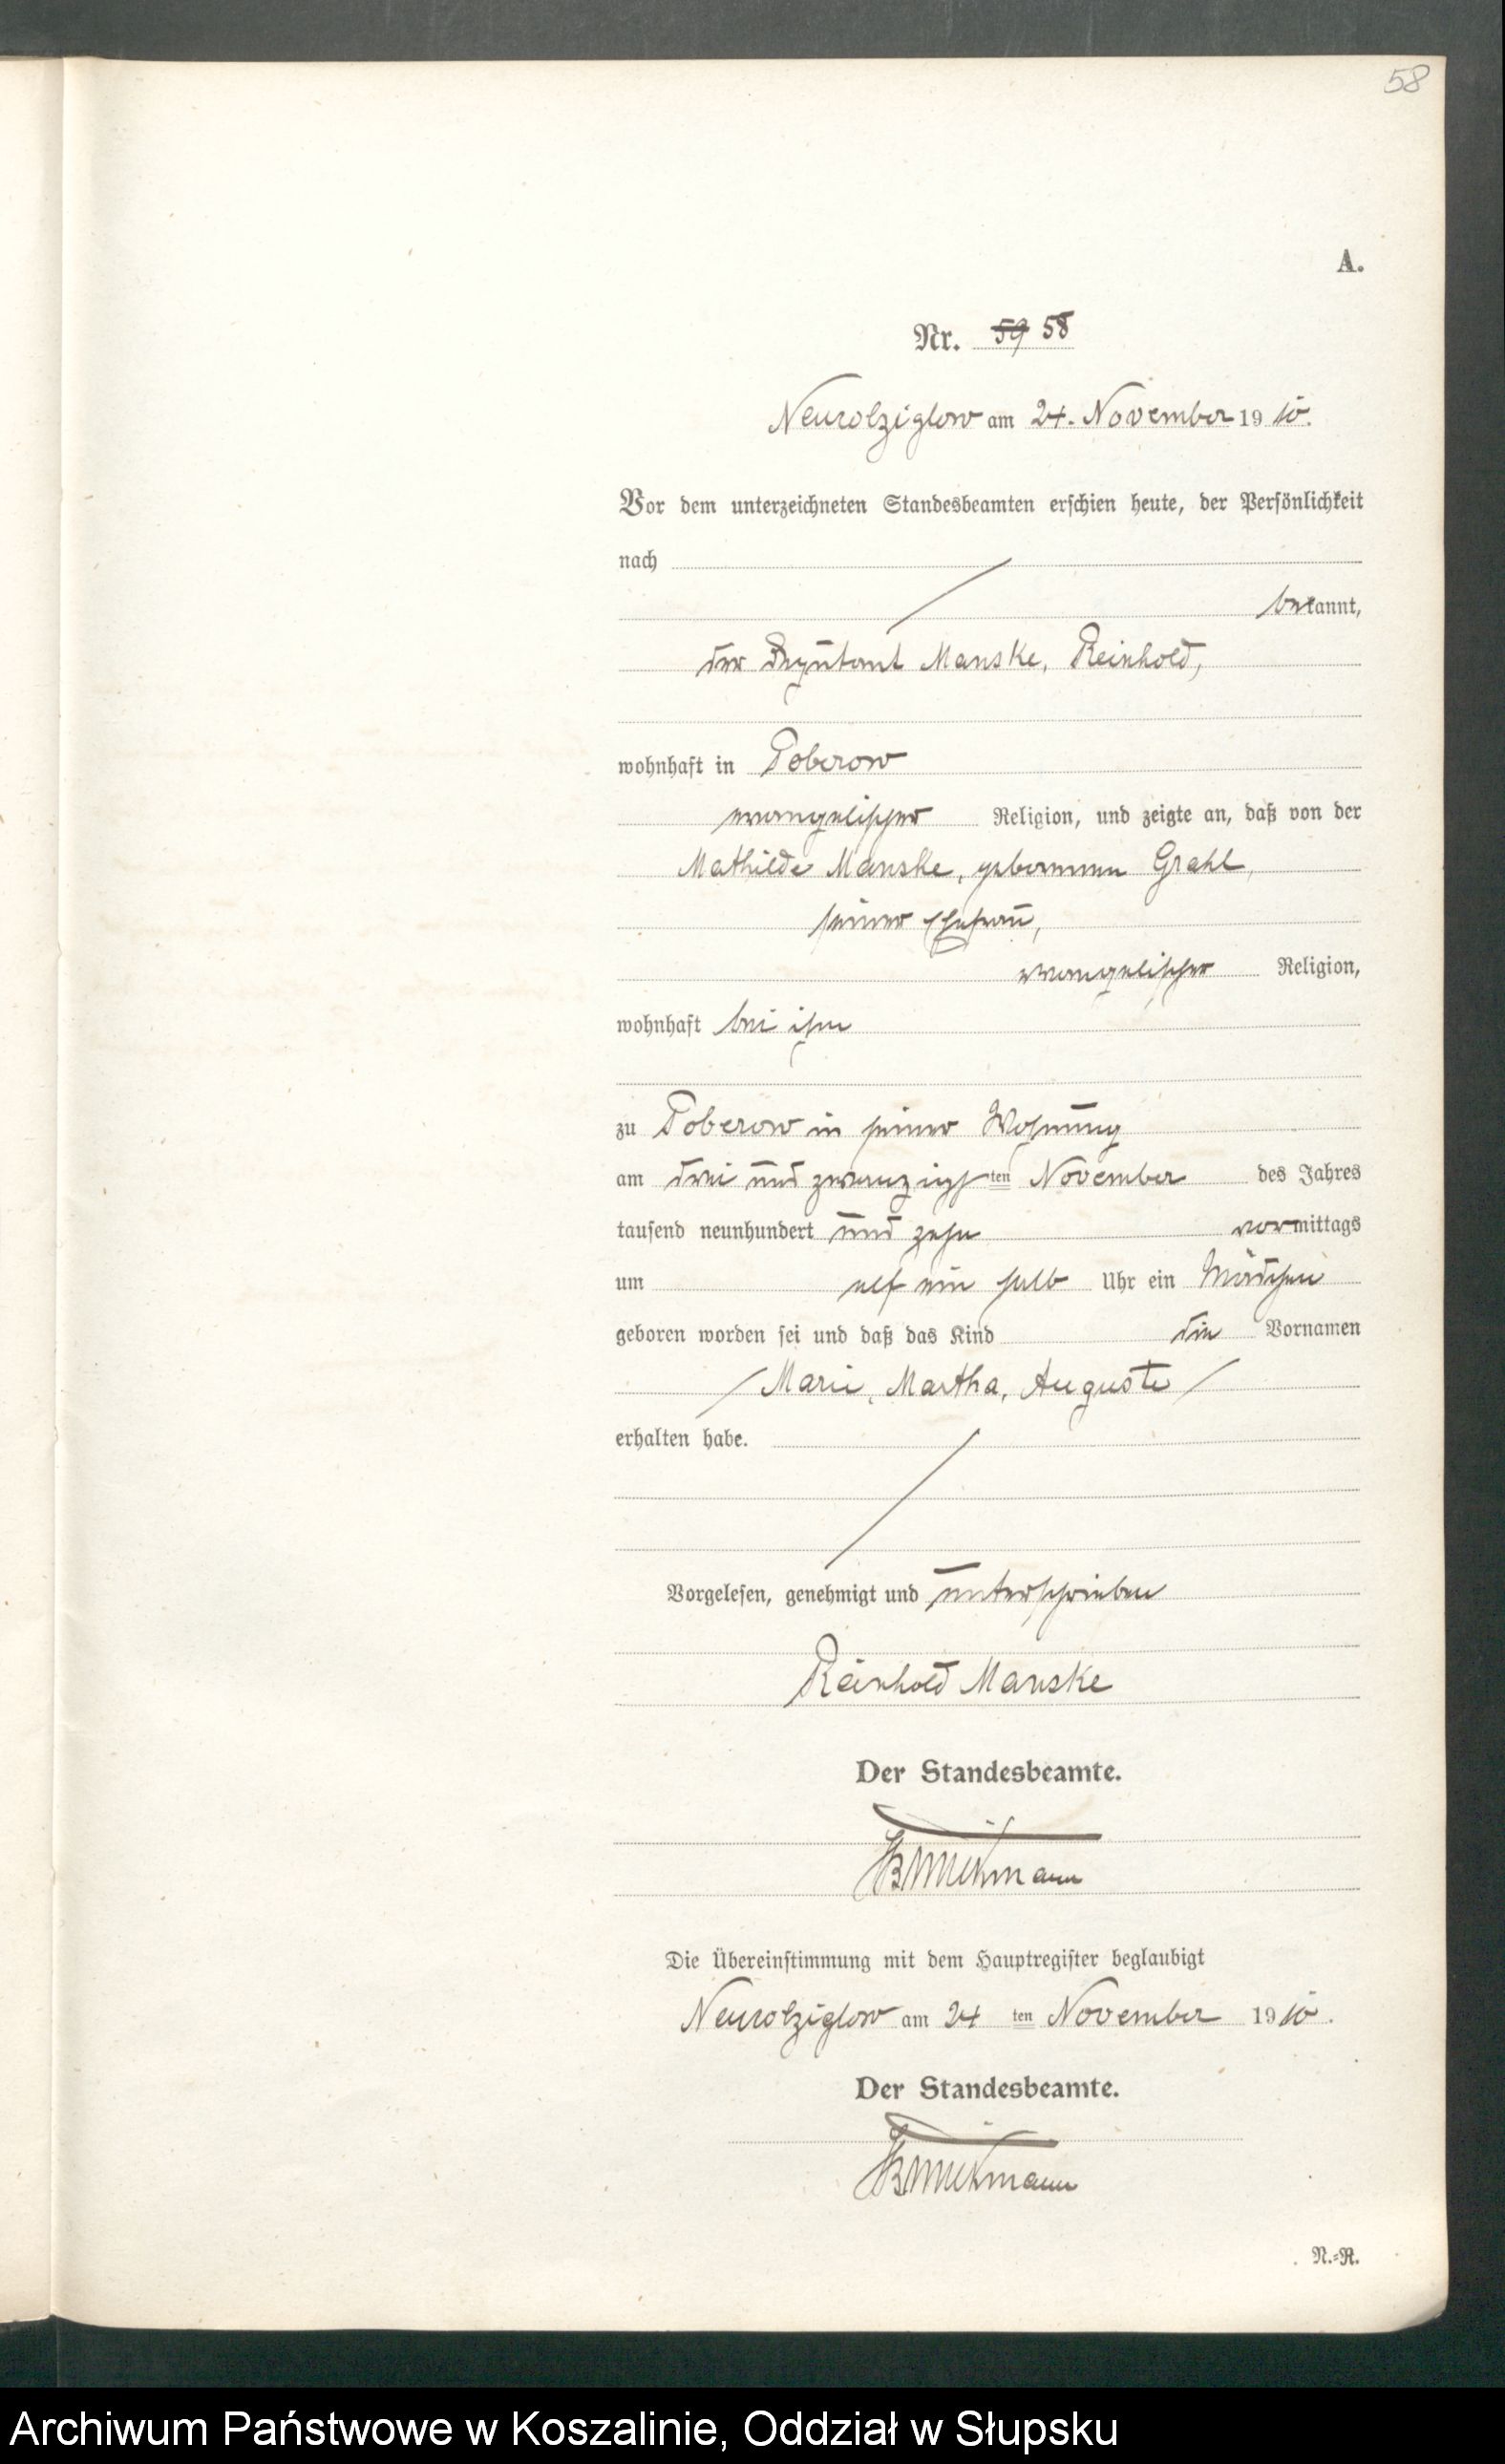 58
A.
Nr. 59 58
Neukolziglow am 24. November 1910.
Vor dem unterzeichneten Standesbeamten erschien heute, der Persönlichkeit
nach
bekannt,
der Deputant Manske, Reinhold,
wohnhaft in Poberow
evangelischer Religion, und zeigte an, daß von der
Mathilde Manske, geborenen Grahl,
seiner Ehefrau,
evangelischer Religion,
wohnhaft bei ihm
zu Poberow in seiner Wohnung
am drei und zwanzigsten November des Jahres
tausend neunhundert und zehn vormittags
um elf ein halb Uhr ein Mädchen
geboren worden sei und daß das Kind die Vornamen
/ Marie, Martha, Auguste /
erhalten habe.
Vorgelesen, genehmigt und unterschrieben
Reinhold Manske
Der Standesbeamte.
Die Übereinstimmung mit dem Hauptregister beglaubigt
Neukolziglow am 24 ten November 1910.
Der Standesbeamte.
N.-R.
Archiwum Państwowe w Koszalinie, Oddział w Słupsku